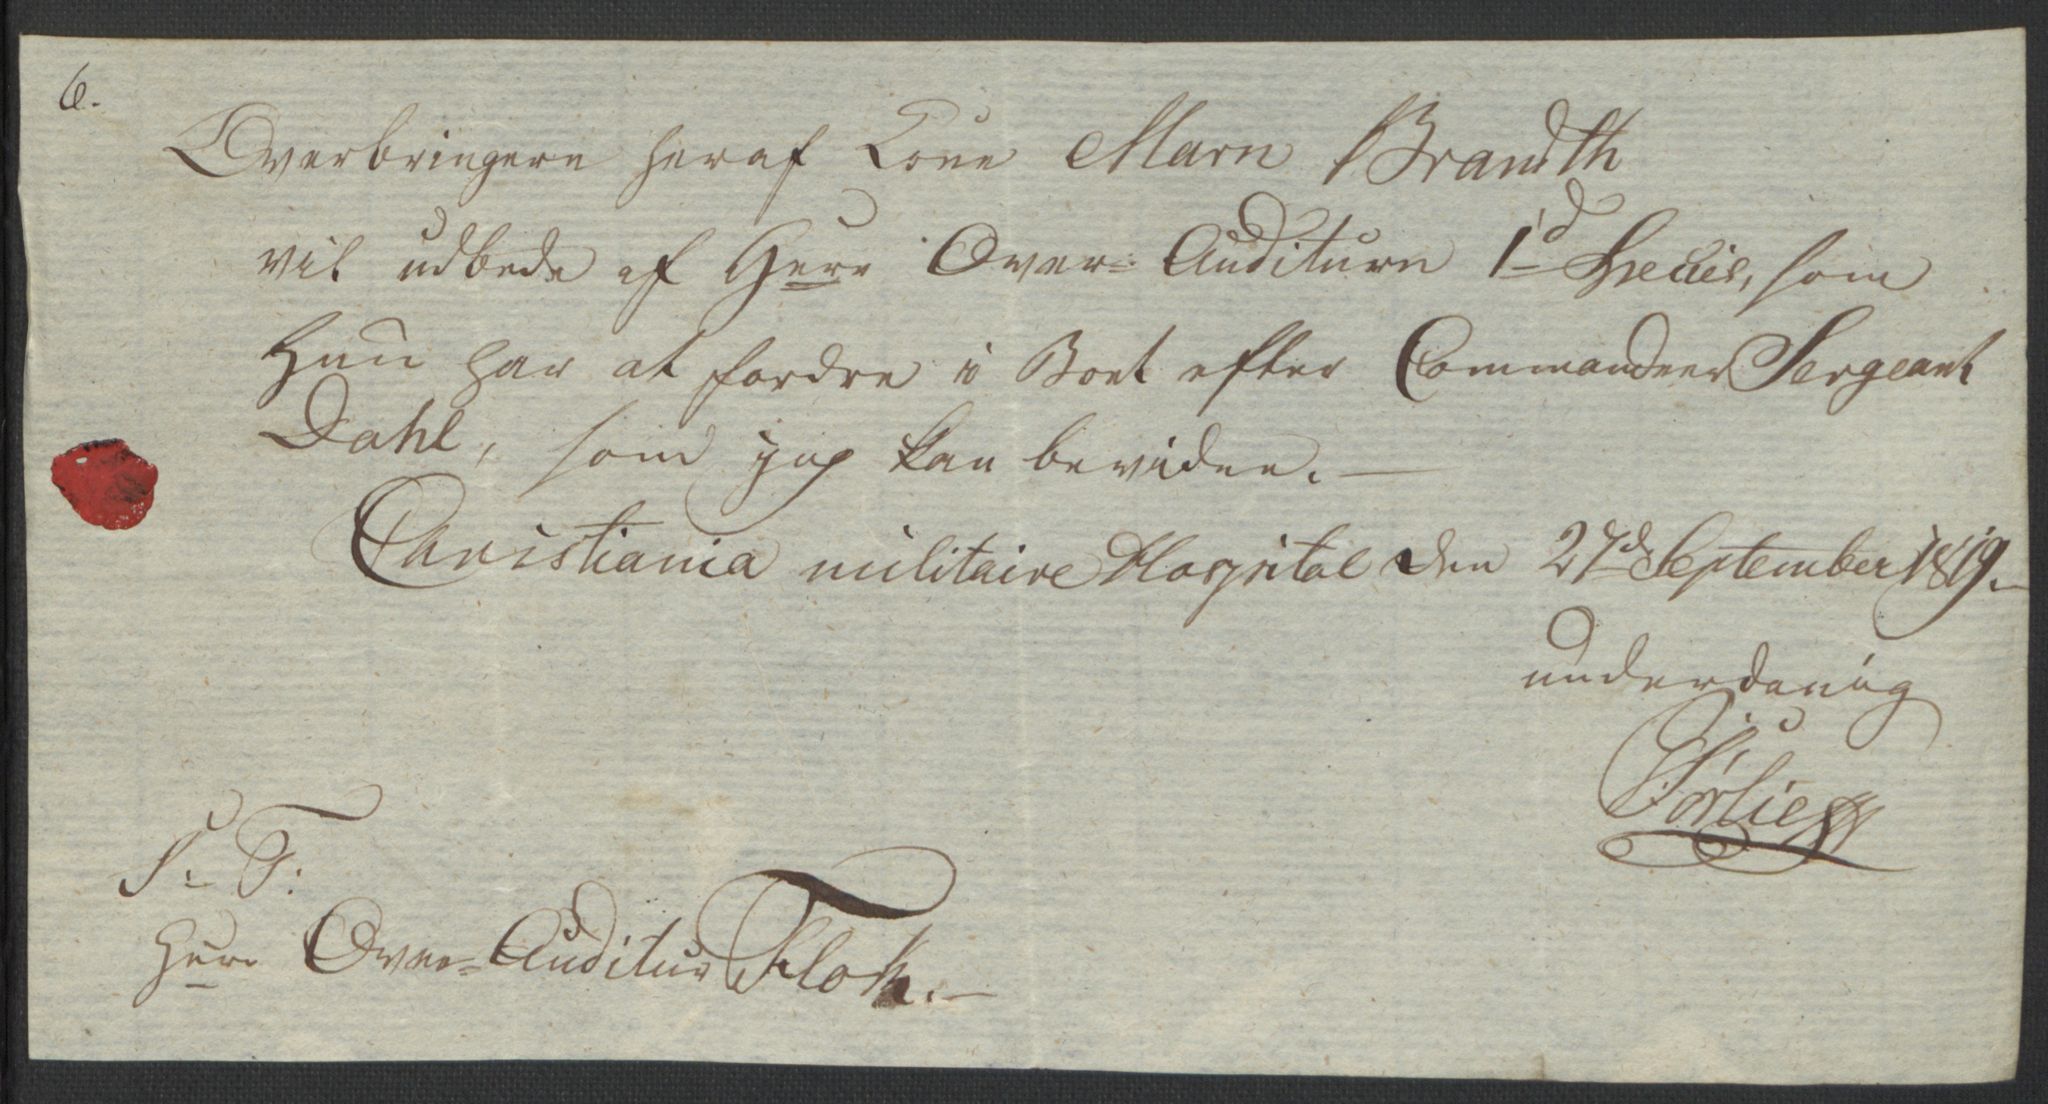 6.
Overbringeren heraf Kone Maren Brandth
vil udbede af Herr Over-Auditeuren 1d Specie, som
Hun har at fordre i Boet efter Commandeer Sergeant
Dahl, som jeg kan bevidne. —
Christiania militaire Hospital den 27d September 1819. —
underdanig
Sørlie
S. T.
Herr Over-Auditeur Flok. —